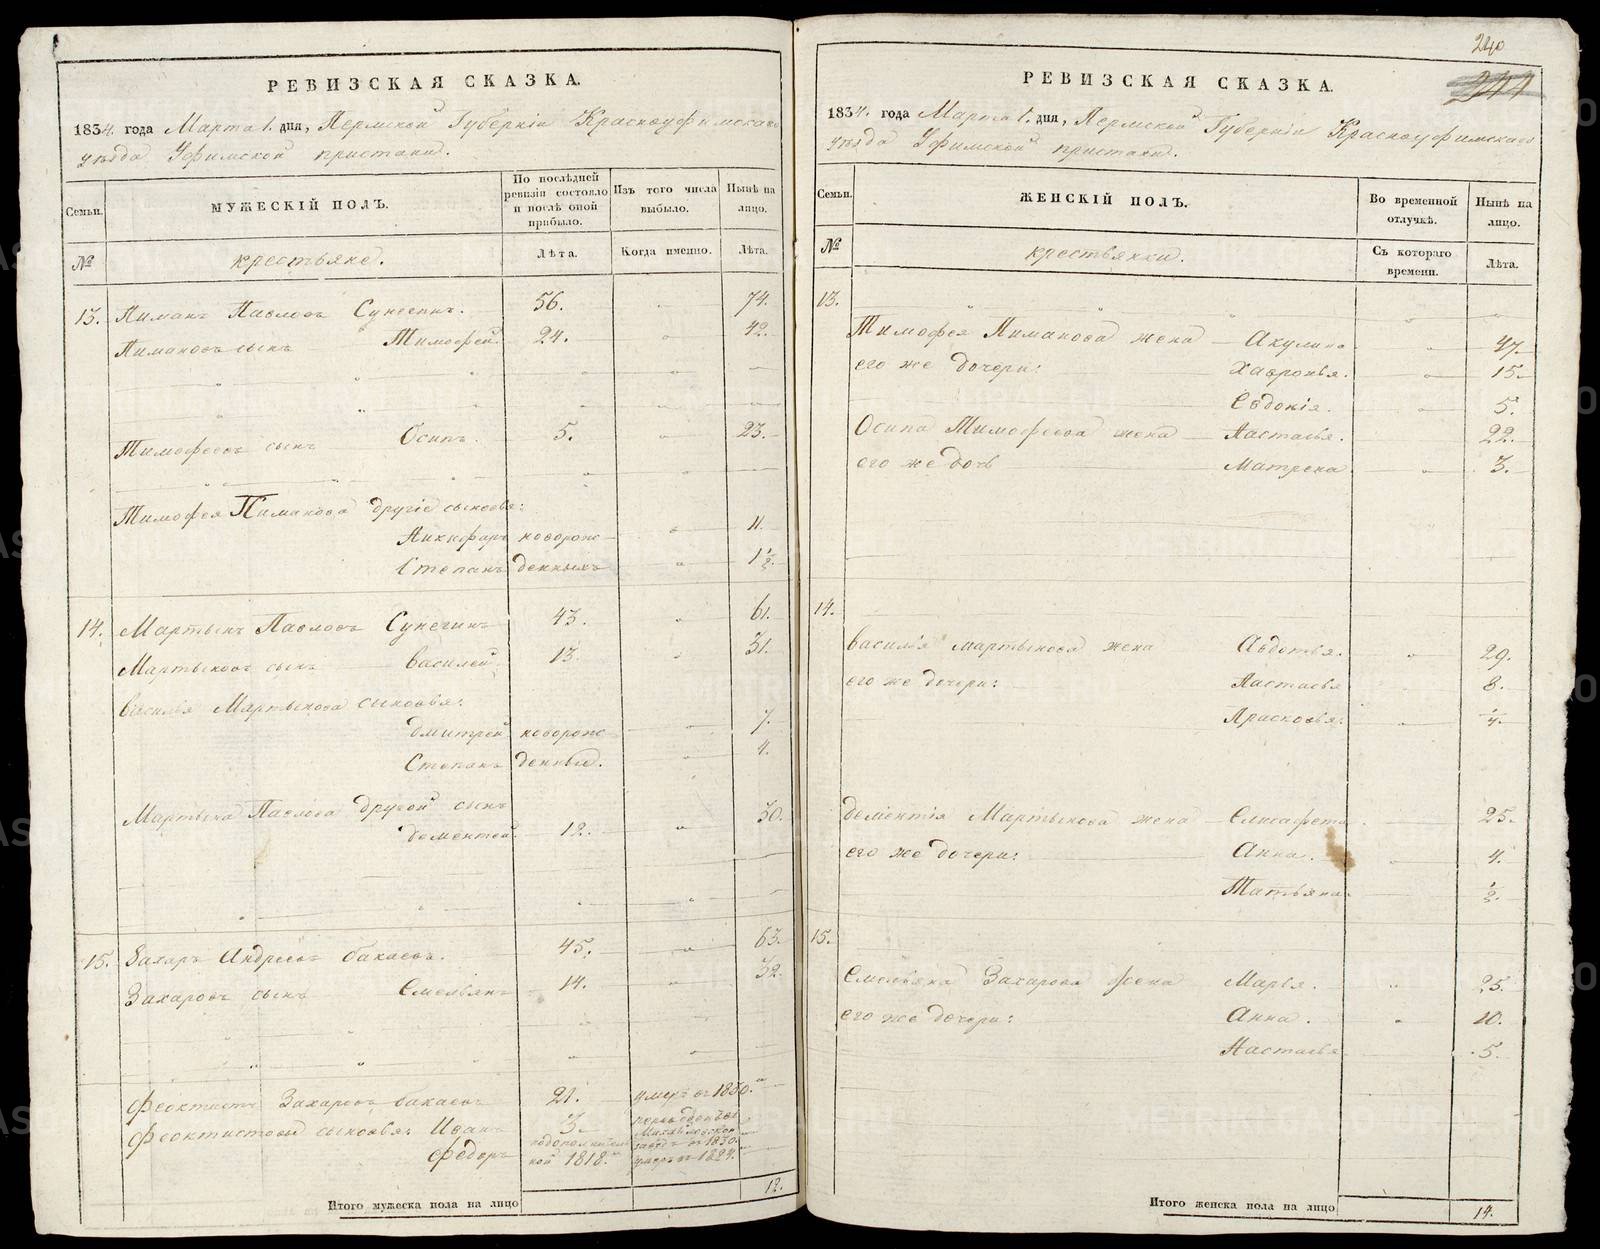 РЕВИЗСКАЯ СКАЗКА.
1834. года Марта 1. дня, Пермской Губерніи Красноуфимскаго
уѣзда Уфимской пристани.
Семьи.
МУЖЕСКІЙ ПОЛЪ.
По послѣдней ревизіи состояло и послѣ оной прибыло.
Изъ того числа выбыло.
Нынѣ на лицо.
№
крестьяне.
Лѣта.
Когда именно.
Лѣта.
13. Пиманъ Павловъ Сунегинъ. 56. 74.
Пимановъ сынъ Тимофей 24. 42.
Тимофеевъ сынъ Осипъ. 5. 23.
Тимофея Пиманова другіе сыновья:
Никифоръ новорож- 11.
Степанъ денныхъ 1½.
14. Мартынъ Павловъ Сунегинъ 43. 61.
Мартыновъ сынъ Василей 13. 31.
Василья Мартынова сыновья:
Дмитрей новорож- 7.
Степанъ денные. 4.
Мартына Павлова другой сынъ
Дементей 12. 30.
15. Захаръ Андреевъ Бакаевъ. 45. 63.
Захаровъ сынъ Емельянъ 14. 32.
Феоктистъ Захаровъ Бакаевъ 21. умеръ въ 1830.
Феоктистовы сыновья: Иванъ 3.
Федоръ 1818. умеръ въ 1824.
Итого мужеска пола на лицо 12.
240
244
РЕВИЗСКАЯ СКАЗКА.
1834. года Марта 1. дня, Пермской Губерніи Красноуфимскаго
уѣзда Уфимской пристани.
Семьи.
ЖЕНСКІЙ ПОЛЪ.
Во временной отлучкѣ.
Нынѣ на лицо.
№
крестьянки.
Съ котораго времени.
Лѣта.
13.
Тимофея Пиманова жена Акулина 47.
его же дочери: Хавронья. 15.
Евдокія. 5.
Осипа Тимофеева жена Настасья. 22.
его же дочь Матрена 3.
14.
Василья Мартынова жена Авдотья. 29.
его же дочери: Настасья 8.
Прасковья: ¼.
Дементія Мартынова жена Елисафета. 25.
его же дочери: Анна. 4.
Татьяна ½.
15.
Емельяна Захарова жена Марья. 25.
его же дочери: Анна. 10.
Настасья 5.
Итого женска пола на лицо 14.